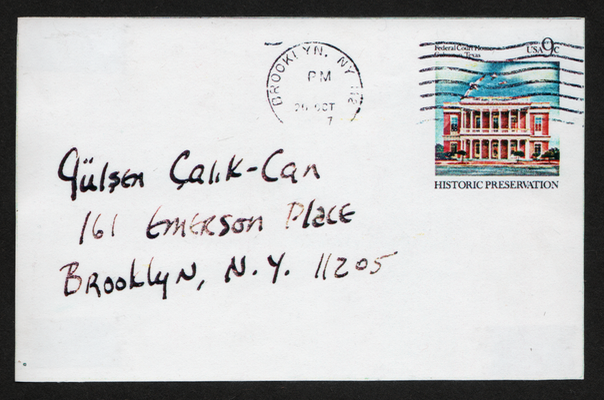 Federal Court House
Galveston, Texas
USA 9c
BROOKLYN, NY 112
PM
25 OCT
7
HISTORIC PRESERVATION
Gülşen Çalık-Can
161 Emerson Place
Brooklyn, N.Y. 11205